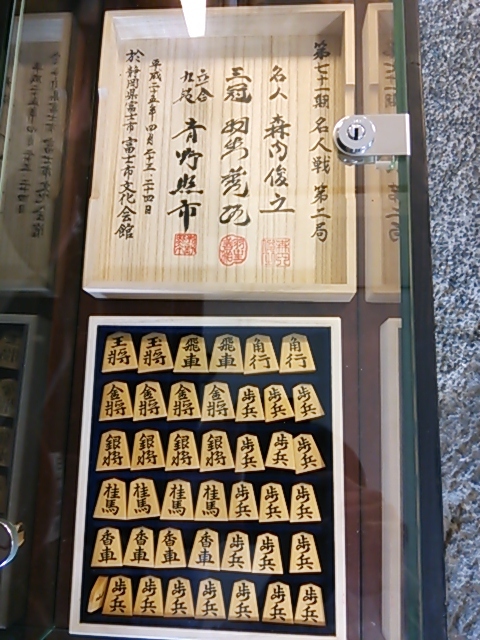 第七十一期 名人戦 第二局
名人 森内俊之
三冠 羽生善治
立合 九段 青野照市
平成二十五年四月二十三、二十四日
於 静岡県富士市 富士市文化会館
王将 玉将 飛車 飛車 角行 角行
金将 金将 金将 金将 歩兵 歩兵 歩兵
銀将 銀将 銀将 銀将 歩兵 歩兵 歩兵
桂馬 桂馬 桂馬 桂馬 歩兵 歩兵 歩兵
香車 香車 香車 香車 歩兵 歩兵 歩兵
歩兵 歩兵 歩兵 歩兵 歩兵 歩兵